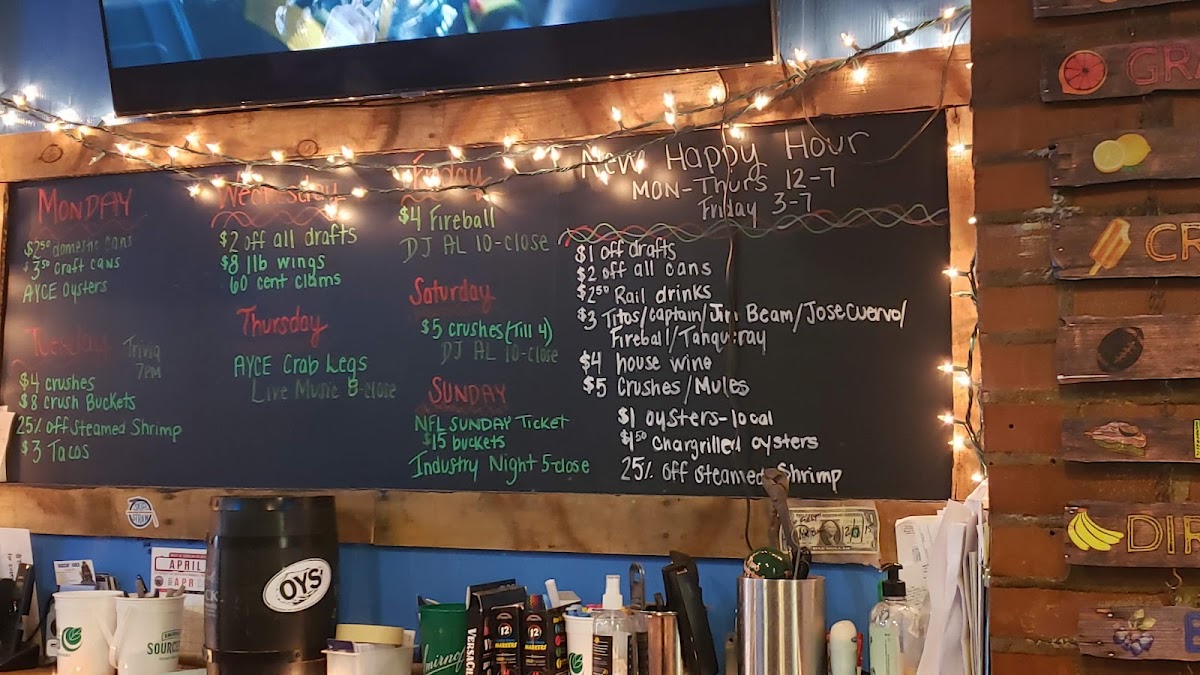 MONDAY
$2⁵⁰ domestic cans
$3⁵⁰ craft cans
AYCE Oysters
Tuesday
Trivia
7PM
$4 crushes
$8 crush Buckets
25% off Steamed Shrimp
$3 Tacos
Wednesday
$2 off all drafts
$8 1lb wings
60 cent clams
Thursday
AYCE Crab Legs
Live Music 8-close
Friday
$4 Fireball
DJ AL 10-close
Saturday
$5 crushes (Till 4)
DJ AL 10-close
SUNDAY
NFL SUNDAY TICKET
$15 buckets
Industry Night 5-close
New Happy Hour
MON-Thurs 12-7
Friday 3-7
$1 off drafts
$2 off all cans
$2⁵⁰ Rail drinks
$3 Titos/Captain/Jim Beam/Jose Cuervo/
Fireball/Tanqueray
$4 house wine
$5 Crushes/Mules
$1 oysters-local
$1⁵⁰ Chargrilled oysters
25% off Steamed Shrimp
GRA
CR
DIR
OYS
APRIL
APR
SOURC
12
12
MARKERS